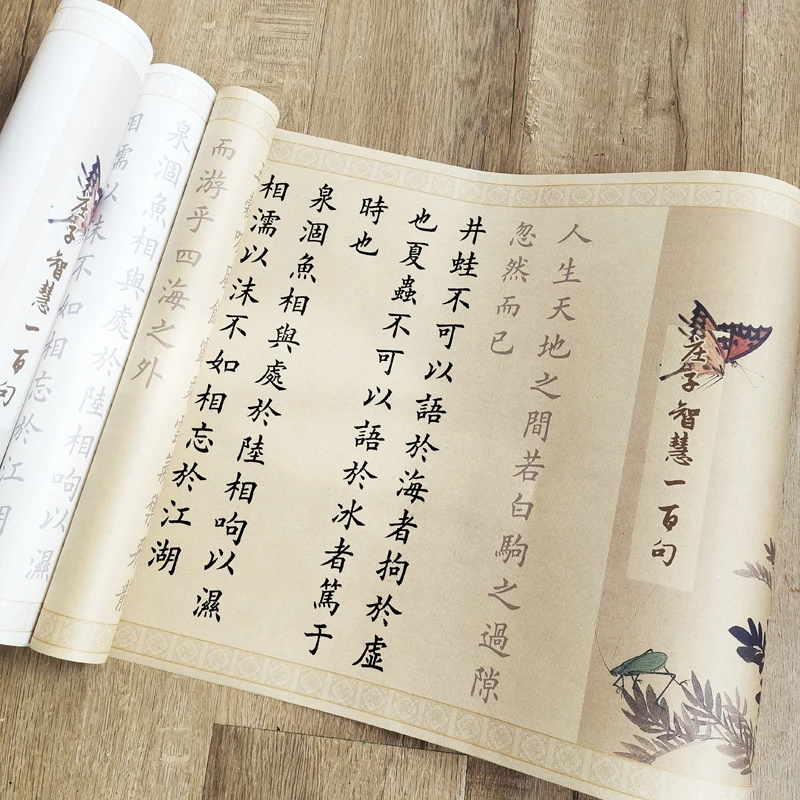 庄子智慧一百句
人生天地之間若白駒之過隙
忽然而已
井蛙不可以語於海者拘於虚
也夏蟲不可以語於冰者篤于
時也
泉涸魚相與處於陸相呴以濕
相濡以沫不如相忘於江湖
而游乎四海之外
泉涸魚相與處於陸相呴以濕
相濡以沫不如相忘於江湖
庄子智慧一百句